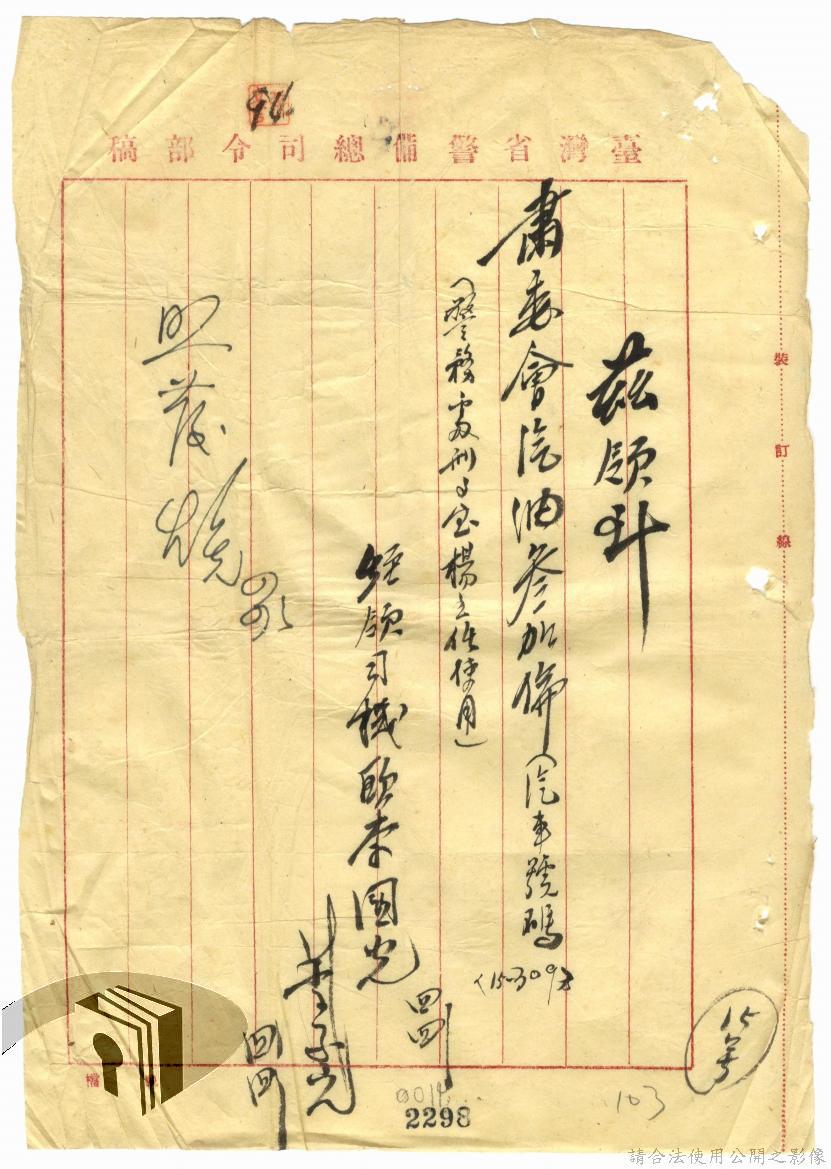 94
臺灣省警備總司令部稿
茲領到
肅委會汽油叁加侖（汽車號碼
15-309
（警務處刑事室楊主任使用）
經領司機歐李國光
四
四
照發
四
四
裝
訂
線
15号
103
001
2298
檔
請合法使用公開之影像